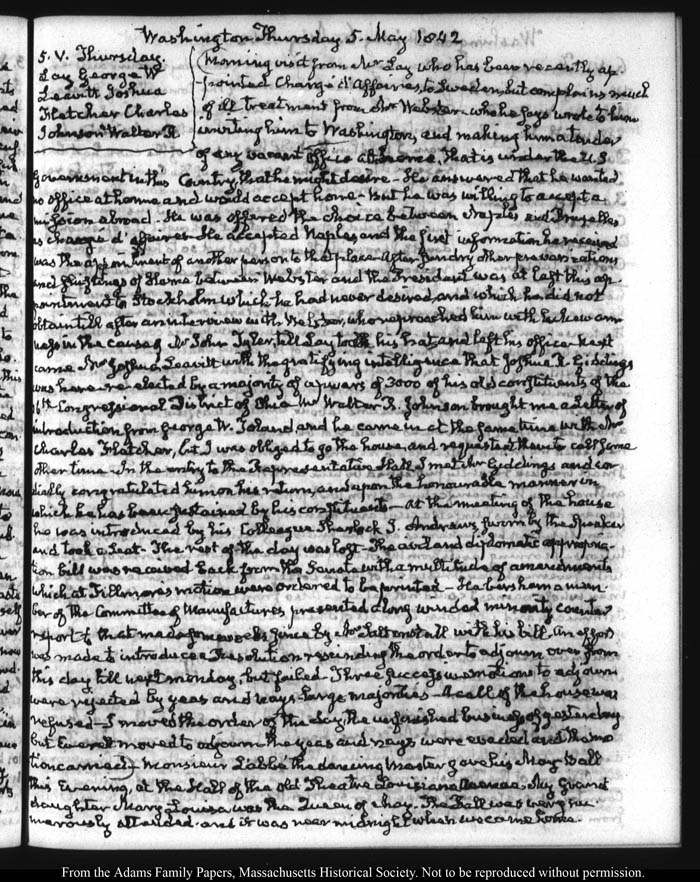 Washington Thursday 5. May 1842
5. V. Thursday.
Lay George W
Leavitt Joshua
Fletcher Charles
Johnson Walter R
Morning visit from Mr Lay who has been recently ap-
-pointed Chargé d'Affaires, to Sweden, but complains much
of ill treatment from Mr Webster who he says wrote to him
inviting him to Washington, and making him a tender
of any vacant office at home, that is under the U.S
Government in this Country, that he might desire— He answered that he wanted
no office at home and would accept none— But he was willing to accept a
mission abroad— He was offered the choice between Naples and Bruxelles
as chargé d'affaires— He accepted Naples, and the first information he received
was the appointment of another person to that place— After sundry other prevarications
and shiftings of blame between Webster and the President was at last this ap-
pointment to Stockholm which he had never desired, and which he did not
obtain till after an interview with Webster, who reproached him with lukewarm
ness in the cause of Mr John Tyler, till Lay took his hat and left his office— Next
came Mr Joshua Leavitt with the gratifying intelligence that Joshua R. Giddings
was have re-elected by a majority of upwards of 3000 of his old constituents of the
16th Congressional District of Ohio Mr Walter R. Johnson brought me a Letter of
introduction from George W. Toland, and he came in at the same time with Mr
Charles Fletcher, but I was obliged to go the house, and requested them to call some
other time— In the entry to the Representative Hall I met Mr Giddings and cor-
dially congratulated him on his return, and upon the honourable manner in
which he has been sustained by his constituents— At the meeting of the house
he was introduced by his Colleague Sherlock J. Andrews, sworn by the Speaker
and took a Seat— The rest of the day was lost— The civil and diplomatic appropria-
tion bill was received back from the Senate with a multitude of amendments
which at Fillmore's motion were ordered to be printed— Habersham a mem-
ber of the Committee of Manufactures presented a long winded minority counter
report to that made some weeks since by Mr Saltonstall with his bill. An effort
was made to introduce a Resolution rescinding the order to adjourn over from
this day till next monday, but failed— Three successive motions to adjourn
were rejected by yeas and nays— large majorities— A call of the house was
refused— I moved the order of the day, the unfinished business of yesterday
but Everett moved to adjourn the yeas and nays were evaded and the mo
tion carried— Monsieur Labbé the dancing Master gave his May Ball
this Evening, at the Hall of the old Theatre Louisiana Avenue. My Grand
daughter Mary Louisa was the Queen of May. The Ball was very nu-
merously attended. and it was near midnight when we came home.
From the Adams Family Papers, Massachusetts Historical Society. Not to be reproduced without permission.